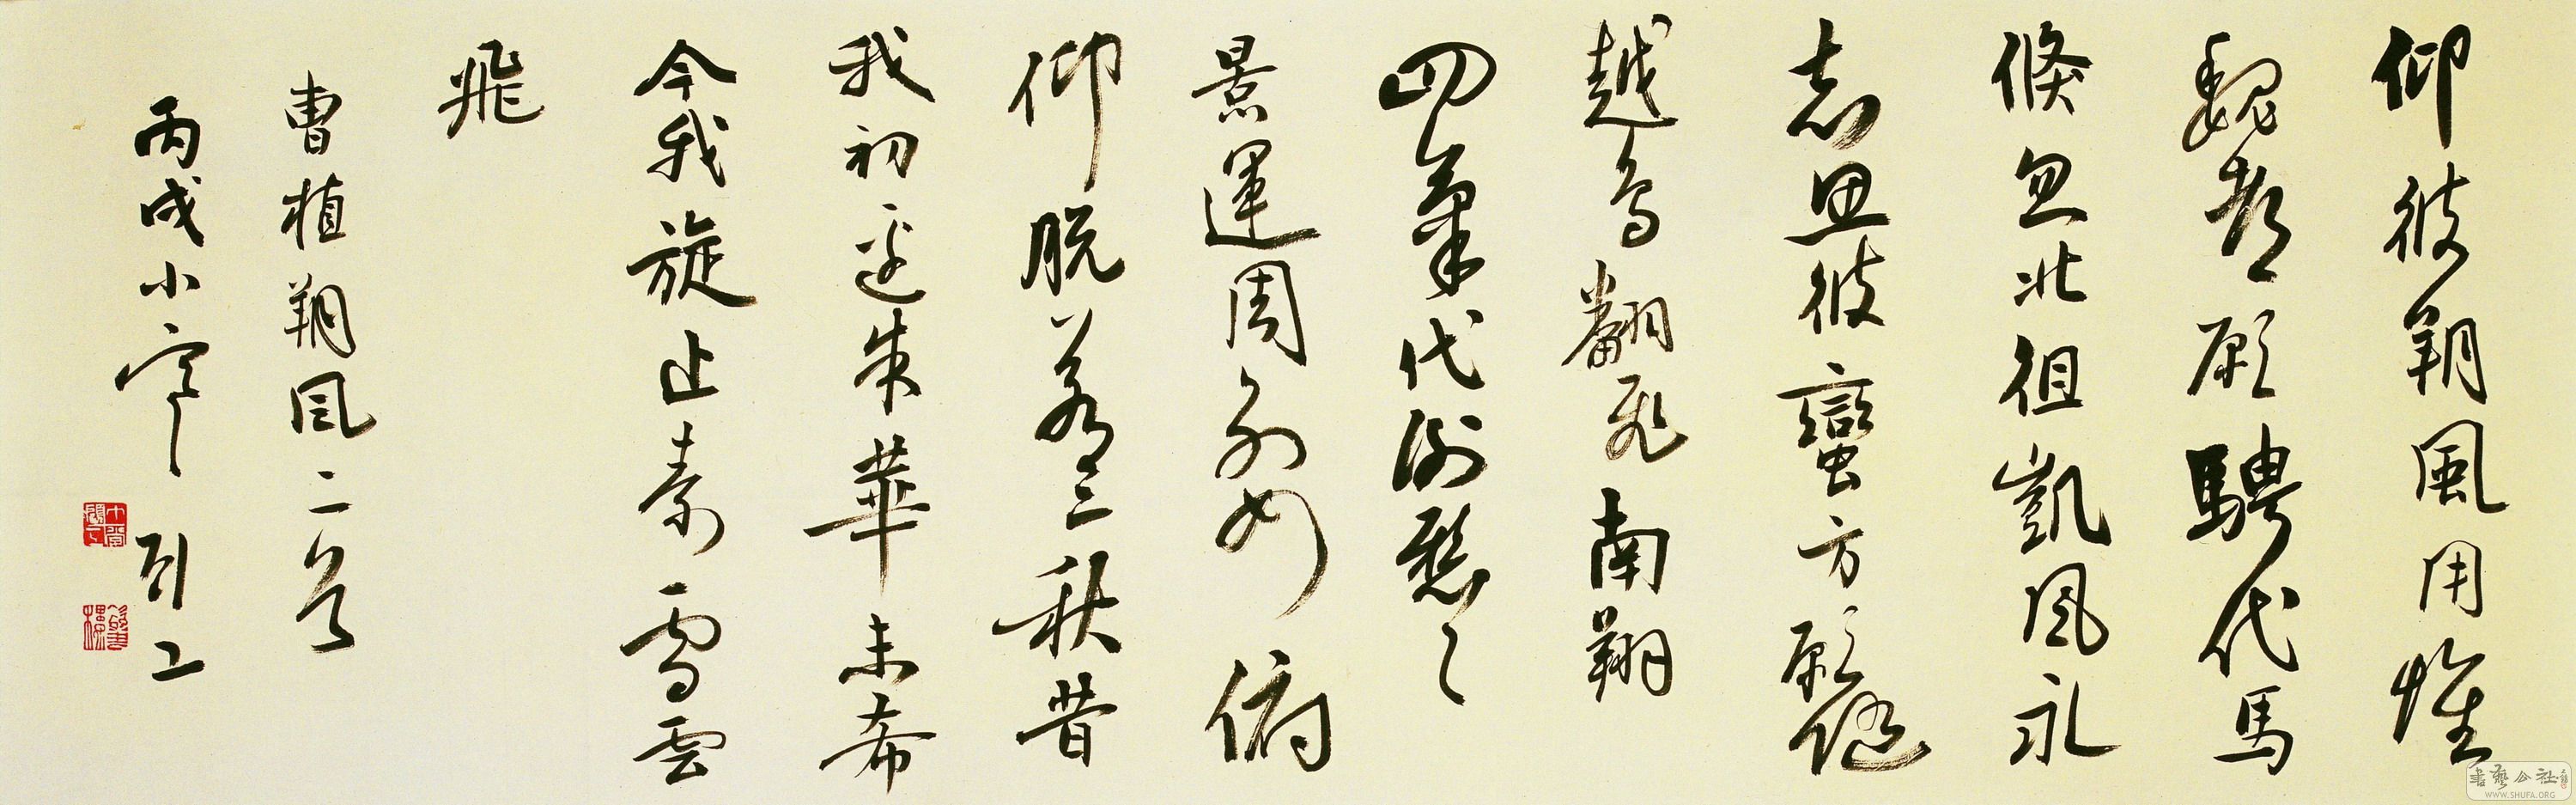 仰彼朔風用懷
魏都願騁代馬
倏忽北徂凱風永
至思彼蠻方願隨
越鳥翻飛南翔
四氣代謝懸々
景運周別如俯
仰脫若三秋昔
我初遷朱華未希
今我旋止素雪雲
飛
曹植朔風二首
丙戌小寧
書藝公社
WWW.SHUFA.ORG